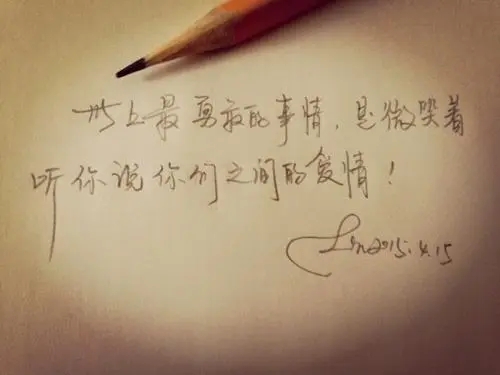 世上最勇敢的事情，是微笑着
听你说你们之间的爱情！
Lin 2015.4.15